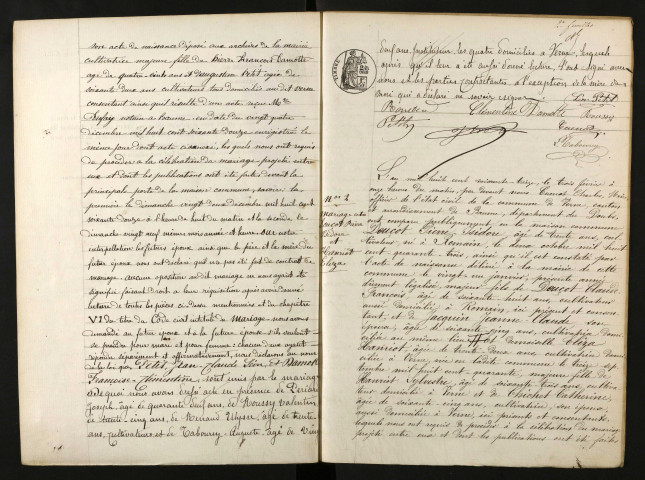 son acte de naissance déposé aux archives de la mairie
cultivatrice majeure fille de Pierre François Damotte
âgé de quatre-vingts ans et d'Augustine Petit âgée de
soixante deux ans cultivateurs tous domiciliés audit Verne
consentant ainsi qu'il résulte d'un acte reçu Me
notaire à Baume, en date du vingt quatre
décembre mil huit cent soixante douze enregistré le
même jour dont acte ci-annexé, lesquels nous ont requis
de procéder à la célébration du mariage projeté entre
eux et dont les publications ont été faites devant la
principale porte de la maison commune, savoir: la
première le dimanche vingt deux décembre mil huit cent
soixante douze à l'heure de huit du matin et la seconde le
dimanche vingt neuf même mois année et heure. Sur notre
interpellation les futurs époux ainsi que le père et la mère du
futur époux nous ont déclaré qu'il n'a pas été fait de contrat de
mariage, aucune opposition audit mariage ne nous ayant été
signifiée faisant droit à leur réquisition après avoir donné
lecture de toutes les pièces ci-dessus mentionnées et du chapitre
VI du titre du Code civil intitulé du Mariage nous avons
demandé au futur époux et à la future épouse s'ils veulent
se prendre pour mari et pour femme; chacun d'eux ayant
répondu séparément et affirmativement, nous déclarons au nom
de la loi que Petit, Jean-Claude Léon et Damotte
Françoise-Clémentine sont unis par le mariage
De quoi nous avons dressé acte en présence de
Joseph, âgé de quarante ans, de Roussy Valentin
de trente-cinq ans, de Renaud Ulysse âgé de trente
ans, cultivateurs et de Tabourey Auguste âgé de vingt
2e feuillet
deux ans, instituteur, les quatre domiciliés à Verne, lesquels
après qu'il leur a été aussi donné lecture, l'ont signé avec
nous et les parties contractantes à l'exception de la mère du
mari qui a déclaré ne savoir signer
Léon Petit
Clémentine Damotte
Roussy
Petit
Tabourey
No 2
Mariage entre
Doucot Pierre
Isidore
et
Hanriot
Eliza
L'an mil huit cent soixante-treize, le trois février à
onze heures du matin, par devant nous
officier de l'état civil de la commune de Verne, canton
et arrondissement de Baume, département du Doubs,
ont comparu publiquement en la maison commune
Doucot Pierre, Isidore, âgé de trente ans, cul-
tivateur, né à Romain, le deux octobre mil huit
cent quarante trois, ainsi qu'il est constaté par
l'acte de naissance délivré à la mairie de cette
commune, le vingt un janvier, présente année,
dûment légalisé, majeur fils de Doucot Claude
François, âgé de soixante-huit ans, cultivateur
aussi domicilié à Romain, ici présent et consen-
tant, et de Jacquin Jeanne Claude son
épouse, âgée de soixante cinq ans, cultivatrice domi-
ciliée au même lieu Et demoiselle Eliza
Hanriot, âgée de trente deux ans, cultivatrice domi-
ciliée à Verne, née en ladite commune le treize sep-
tembre mil huit cent quarante, majeure fille de
Hanriot Sylvestre, âgé de soixante trois ans, cultiva-
teur domicilié à Verne et de Brichet Catherine,
âgée de soixante cinq ans, cultivatrice, son épouse,
aussi domiciliée à Verne, ici présents et consentants.
Lesquels nous ont requis de procéder à la célébration du mariage
projeté entre eux et dont les publications ont été faites